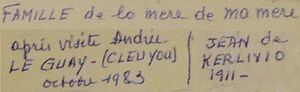 FAMILLE de la mere de ma mere
après visite Andrée
LE GUAY - (CLEUYOU)
octobre 1983
JEAN de
KERLIVIO
1911 -